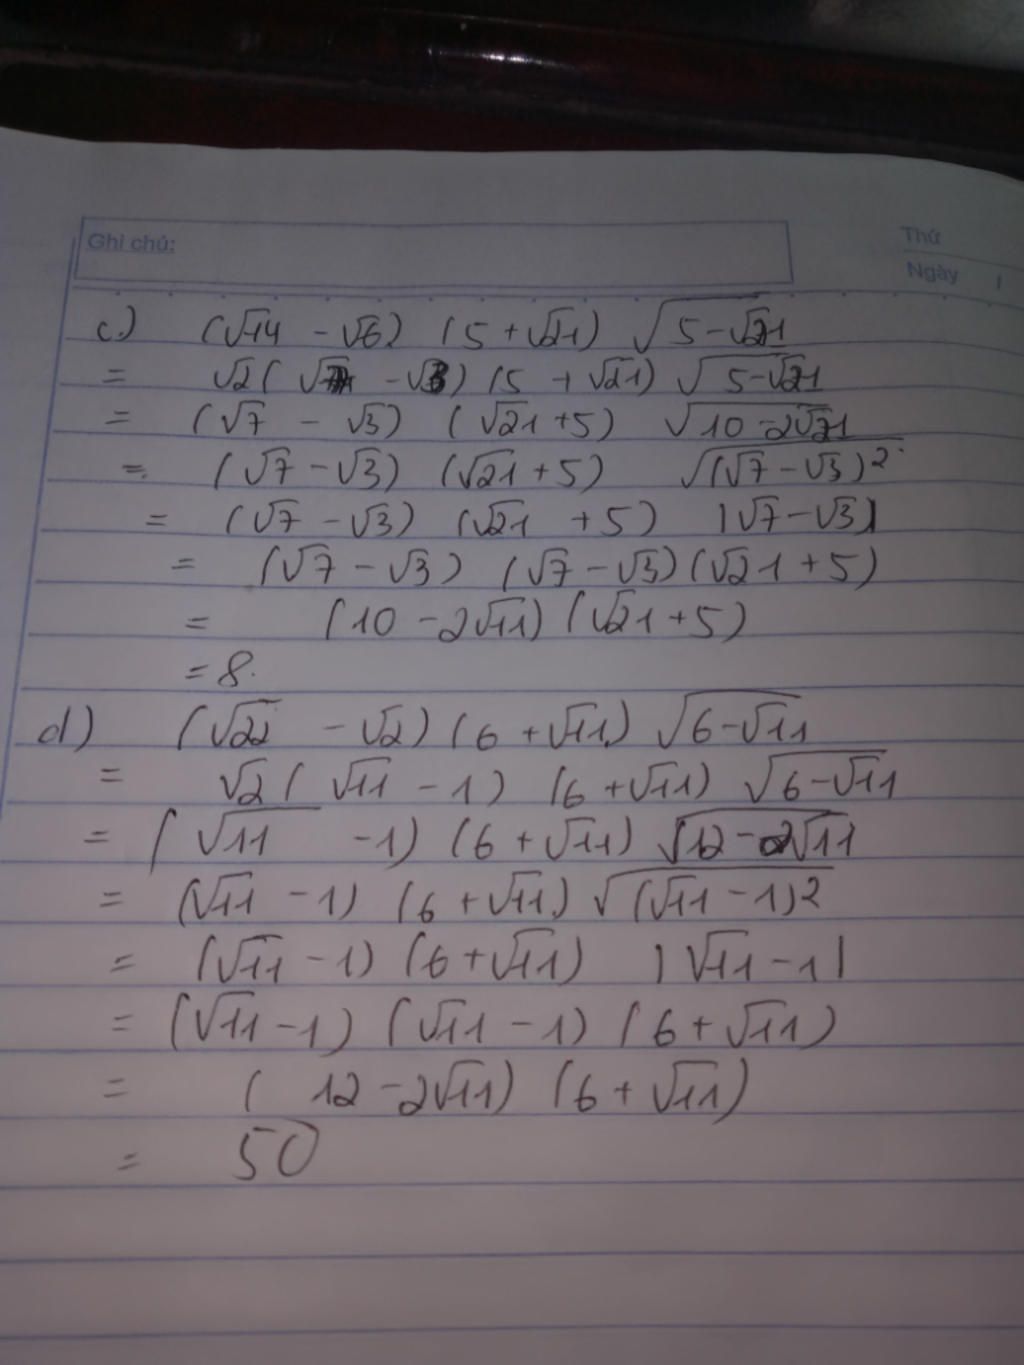 Ghi chú:
Thứ
Ngày
c.) (√14 - √6) (5 + √21) √(5 - √21)
= √2 (√7 - √3) (5 + √21) √(5 - √21)
= (√7 - √3) (√21 + 5) √(10 - 2√21)
= (√7 - √3) (√21 + 5) √((√7 - √3)²)
= (√7 - √3) (√21 + 5) |√7 - √3|
= (√7 - √3) (√7 - √3) (√21 + 5)
= (10 - 2√11) (√21 + 5)
= 8.
d) (√22 - √2) (6 + √11) √(6 - √11)
= √2 (√11 - 1) (6 + √11) √(6 - √11)
= (√11 - 1) (6 + √11) √(12 - 2√11)
= (√11 - 1) (6 + √11) √((√11 - 1)²)
= (√11 - 1) (6 + √11) |√11 - 1|
= (√11 - 1) (√11 - 1) (6 + √11)
= (12 - 2√11) (6 + √11)
= 50